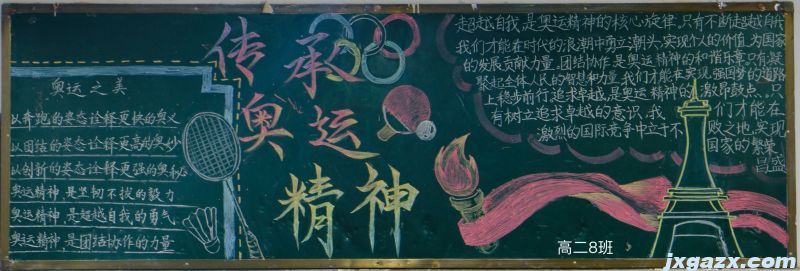 传承
奥运
精神
奥运之美
以奔跑的姿态诠释更快的奥义
以团结的姿态诠释更高的奥妙
以创新的姿态诠释更强的奥秘
奥运精神是坚韧不拔的毅力
奥运精神是超越自我的勇气
奥运精神是团结协作的力量
超越自我,是奥运精神的核心旋律,只有不断超越自我
我们才能在时代的浪潮中勇立潮头,实现个人的价值,为国家
的发展贡献力量。团结协作是奥运精神的和谐乐章,只有凝
聚起全体人民的智慧和力量,我们才能在实现强国梦的道路
上稳步前行。追求卓越,是奥运精神的激昂鼓点。只
有树立追求卓越的意识,我们才能在
激烈的国际竞争中立于不败之地,实现
国家的繁荣
昌盛
高二8班
jxgazx.com